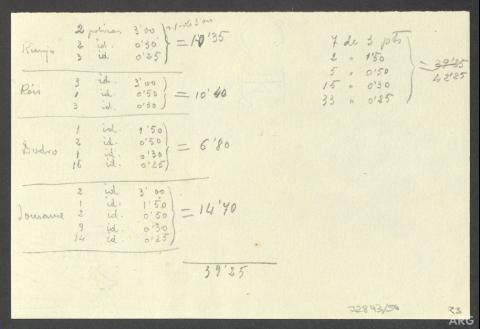 2 pólizas 3'00
2 id. 0'50 = 10'35
3 id. 0'25
Rois
3 id. 3'00
1 id. 0'50 = 10'40
3 id. 0'30
Dodro
1 id. 1'50
2 id. 0'50
1 id. 0'30 = 6'80
16 id. 0'25
Lousame
2 id. 3'00
1 id. 1'50
2 id. 0'50 = 14'70
9 id. 0'30
14 id. 0'25
39'25
7 de 3 pts
2 " 1'50
5 " 0'50
15 " 0'30
33 " 0'25
= 39'25
42'25
72843/50
ARG